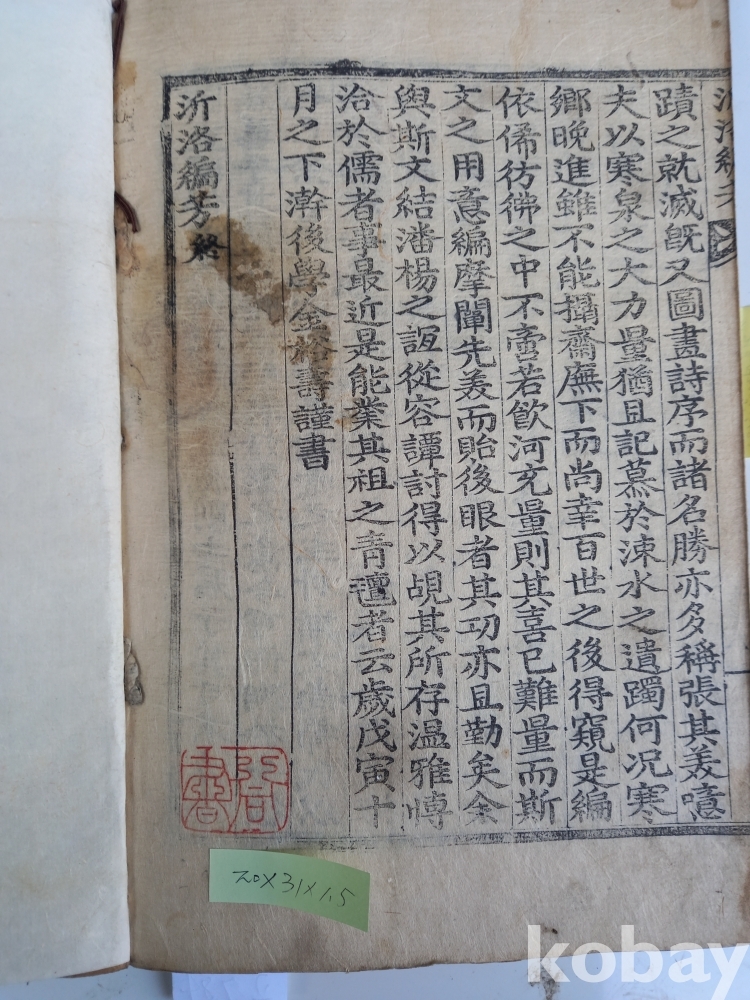 蹟之就滅旣又圖畫詩序而諸名勝亦多稱張其美噫
夫以寒泉之大力量猶且記慕於涑水之遺躅何况寒
鄉晚進雖不能攝齋廡下而尚幸百世之後得窺是編
依俙彷彿之中不啻若飮河充量則其喜已難量而斯
文之用意編摩闡先美而貽後眼者其功亦且勤矣余
與斯文結潘楊之誼從容譚討得以覘其所存温雅愽
洽於儒者事最近是能業其祖之靑氊者云歲戊寅十
月之下澣後學金壽謹書
沂洛編芳終
20×31×1.5
kobay